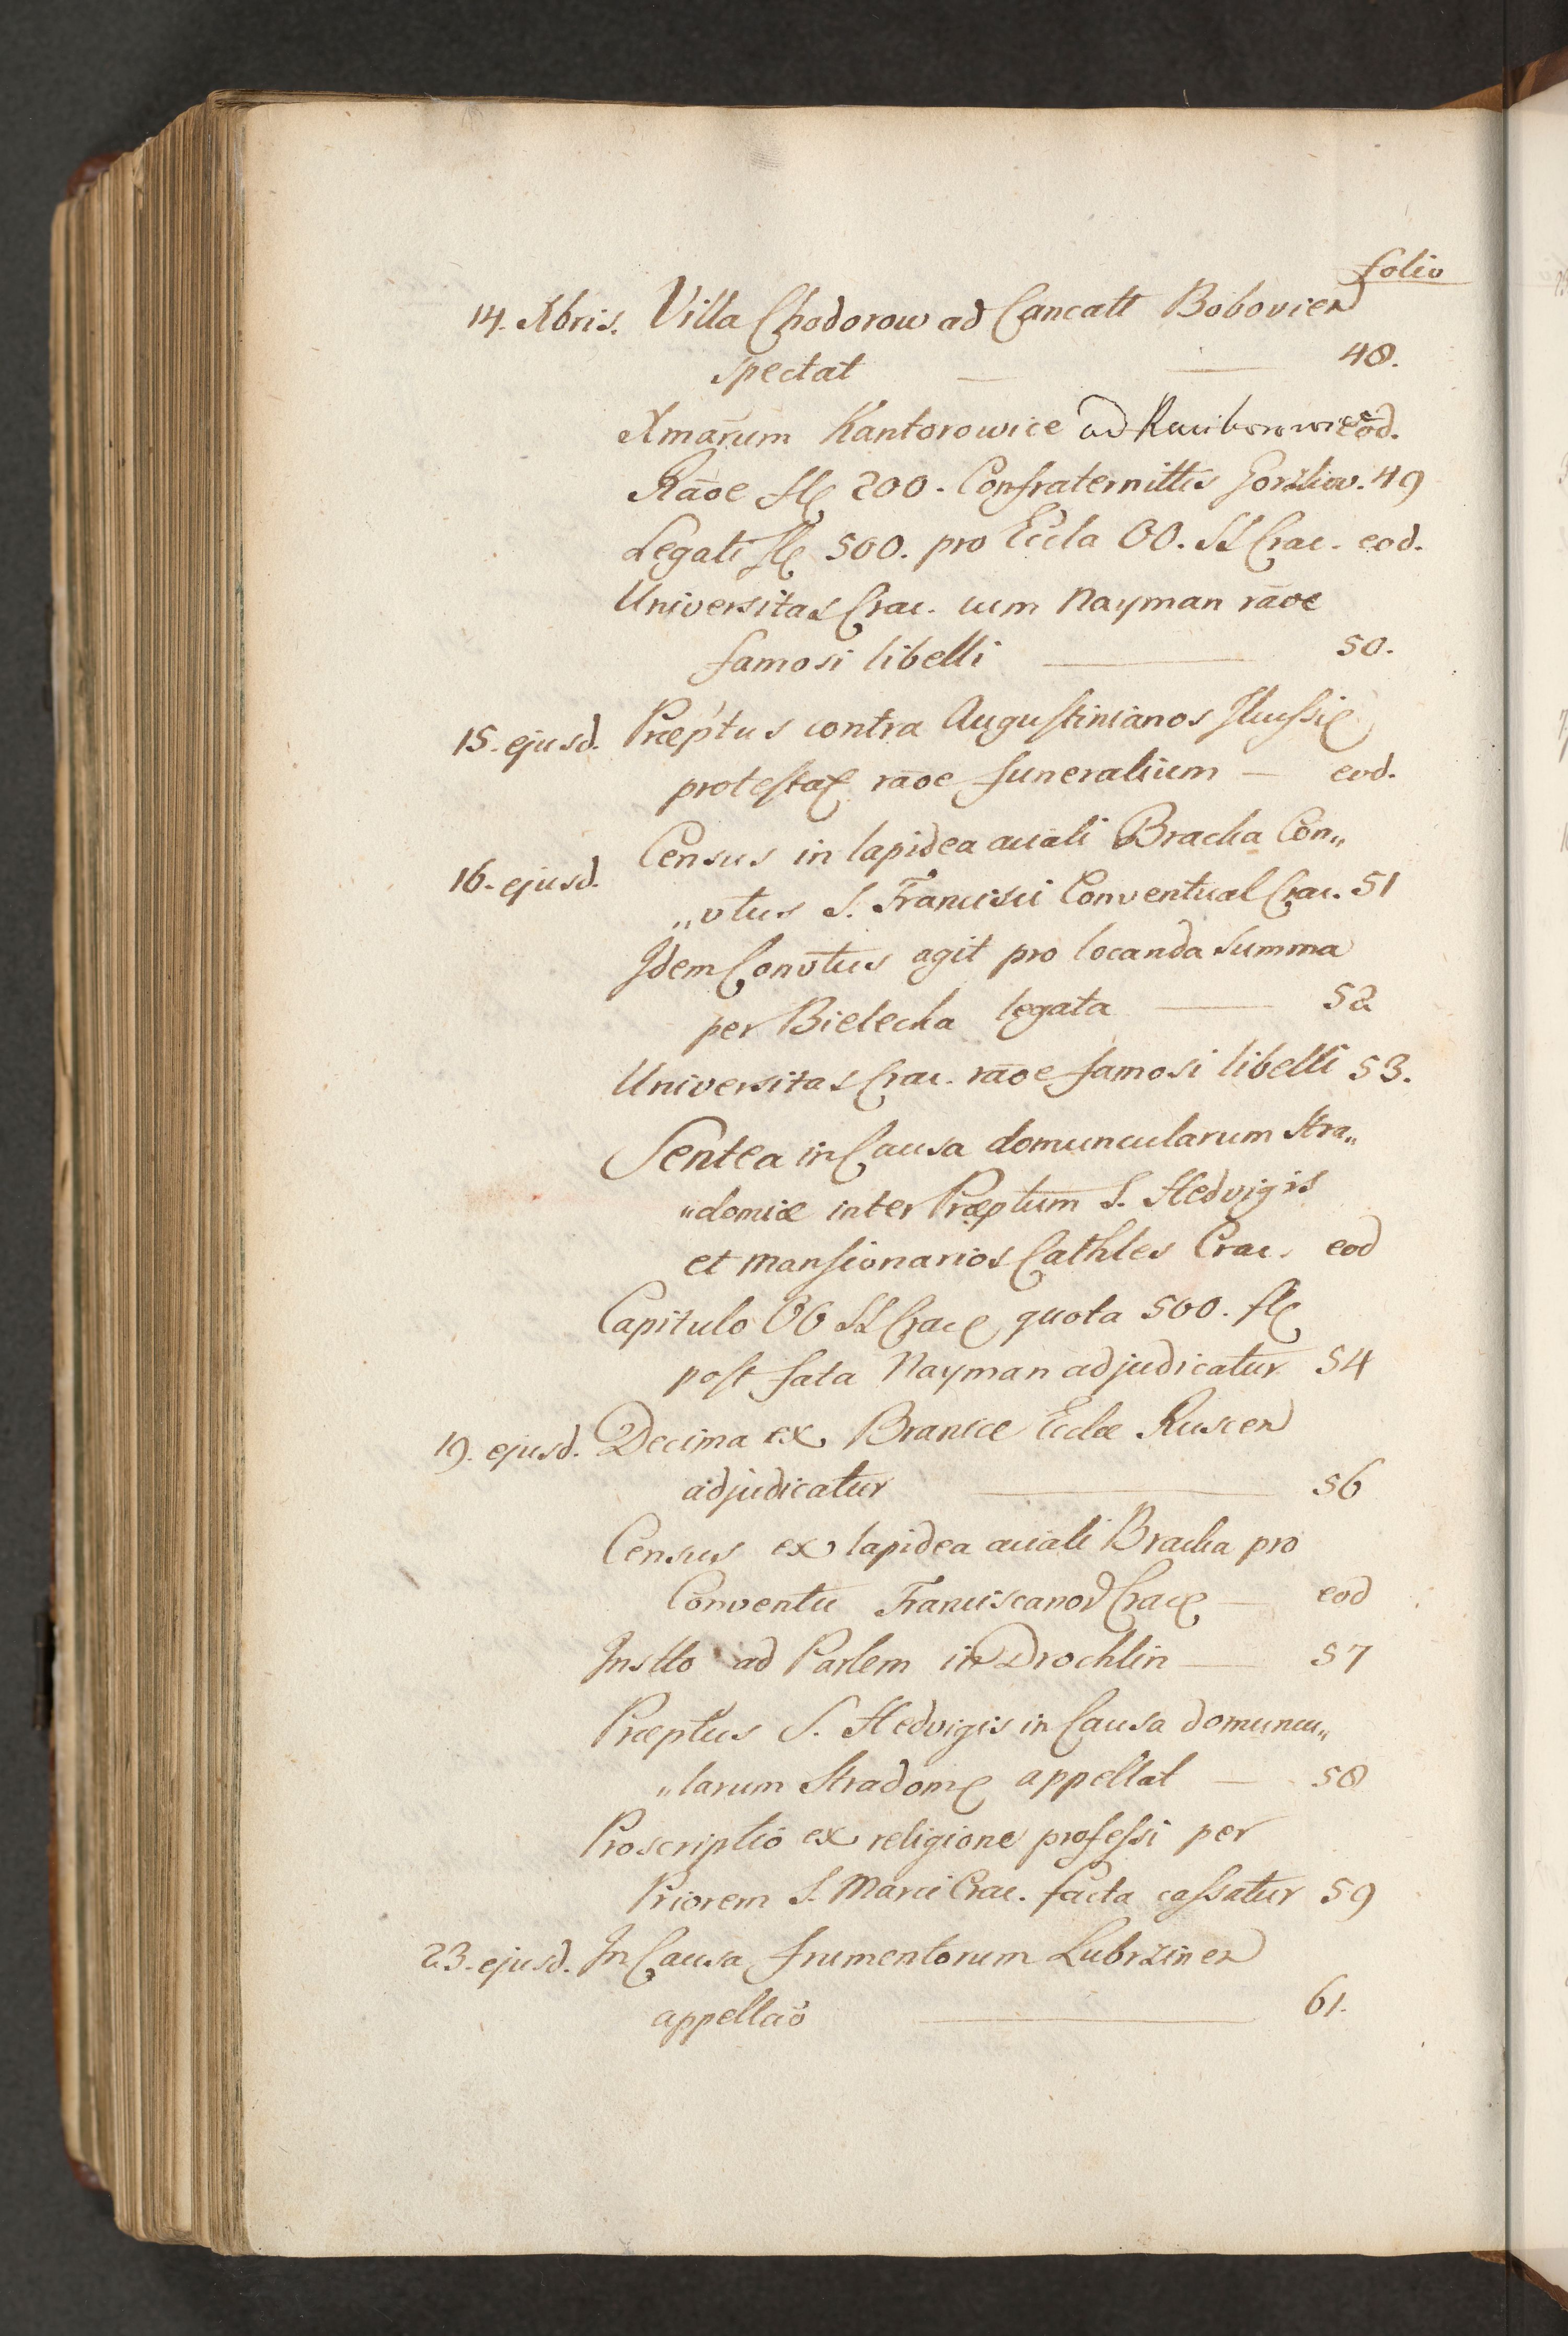 folio
14. Xbris. Villa Chodorow ad Cancatt Bobovien
spectat — — 48.
Xmarum Kantorowice ad eod.
Raoe fl 200. Confraternittis Gorzkow. 49
Legati fl 500. pro Eccla OO. SS Crac. eod.
Universitas Crac. cum Nayman raoe
famosi libelli — 50.
15. ejusd. Præptus contra Augustinianos
protestat raoe funeralium — eod.
16. ejusd. Census in lapidea aciali Bracka Con„
„vtus S. Francisci Conventual Crac. 51
Idem Convtus agit pro locanda summa
per Bielecka legata — 52
Universitas Crac. raoe famosi libelli 53.
Sentea in Causa domuncularum Stra„
„domiæ inter Præptum S. Hedvigis
et mansionarios Cathles Crac. eod
Capitulo OO SS Crac quota 500. fl
post fata Nayman adjudicatur 54
19. ejusd. Decima ex Branice Eccle Ruscen
adjudicatur — 56
Census ex lapidea aciali Bracka pro
Conventu Franciscanor Crac — eod
Instto ad Parlem in Drochlin — 57
Præptus S. Hedvigis in Causa domuncu„
„larum Stradom appellat — 58
Proscriptio ex religione professi per
Priorem S. Marci Crac. facta cassatur 59
23. ejusd. In Causa frumentorum Lubrzinen
appellao — 61.